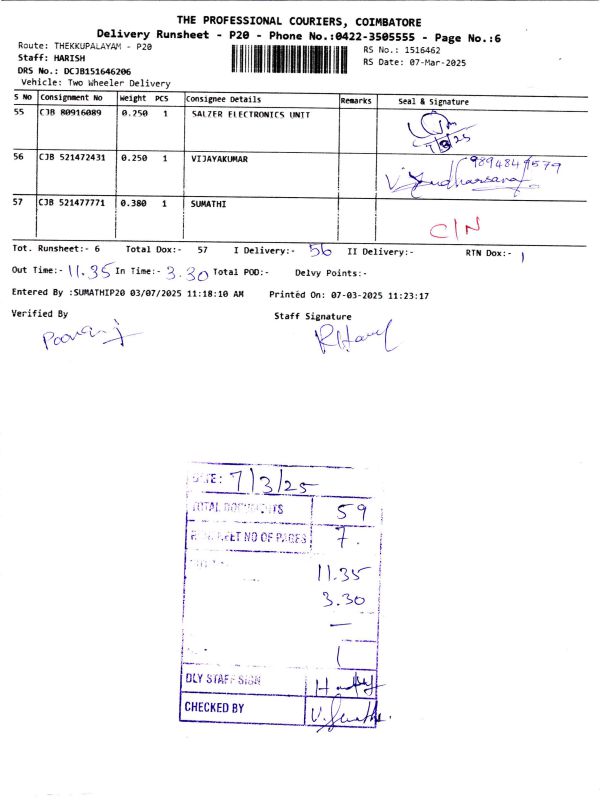 THE PROFESSIONAL COURIERS, COIMBATORE
Delivery Runsheet - P20 - Phone No.:0422-3505555 - Page No.:6
Route: THEKKUPALAYAM - P20
RS No.: 1516462
Staff: HARISH
RS Date: 07-Mar-2025
DRS No.: DCJB151646206
Vehicle: Two Wheeler Delivery
S No Consignment No Weight PCS Consignee Details Remarks Seal & Signature
55 CJB 80916089 0.250 1 SALZER ELECTRONICS UNIT
7 3 25
56 CJB 521472431 0.250 1 VIJAYAKUMAR 9894849579
57 CJB 521477771 0.380 1 SUMATHI
C/N
Tot. Runsheet:- 6 Total Dox:- 57 I Delivery:- 56 II Delivery:- RTN Dox:- 1
Out Time:- 11.35 In Time:- 3.30 Total POD:- Delvy Points:-
Entered By :SUMATHIP20 03/07/2025 11:18:10 AM Printed On: 07-03-2025 11:23:17
Verified By Staff Signature
DATE: 7/3/25
TOTAL DOCUMENTS 59
NO OF PAGES 7.
11.35
3.30
—
1
DLY STAFF SIGN
CHECKED BY